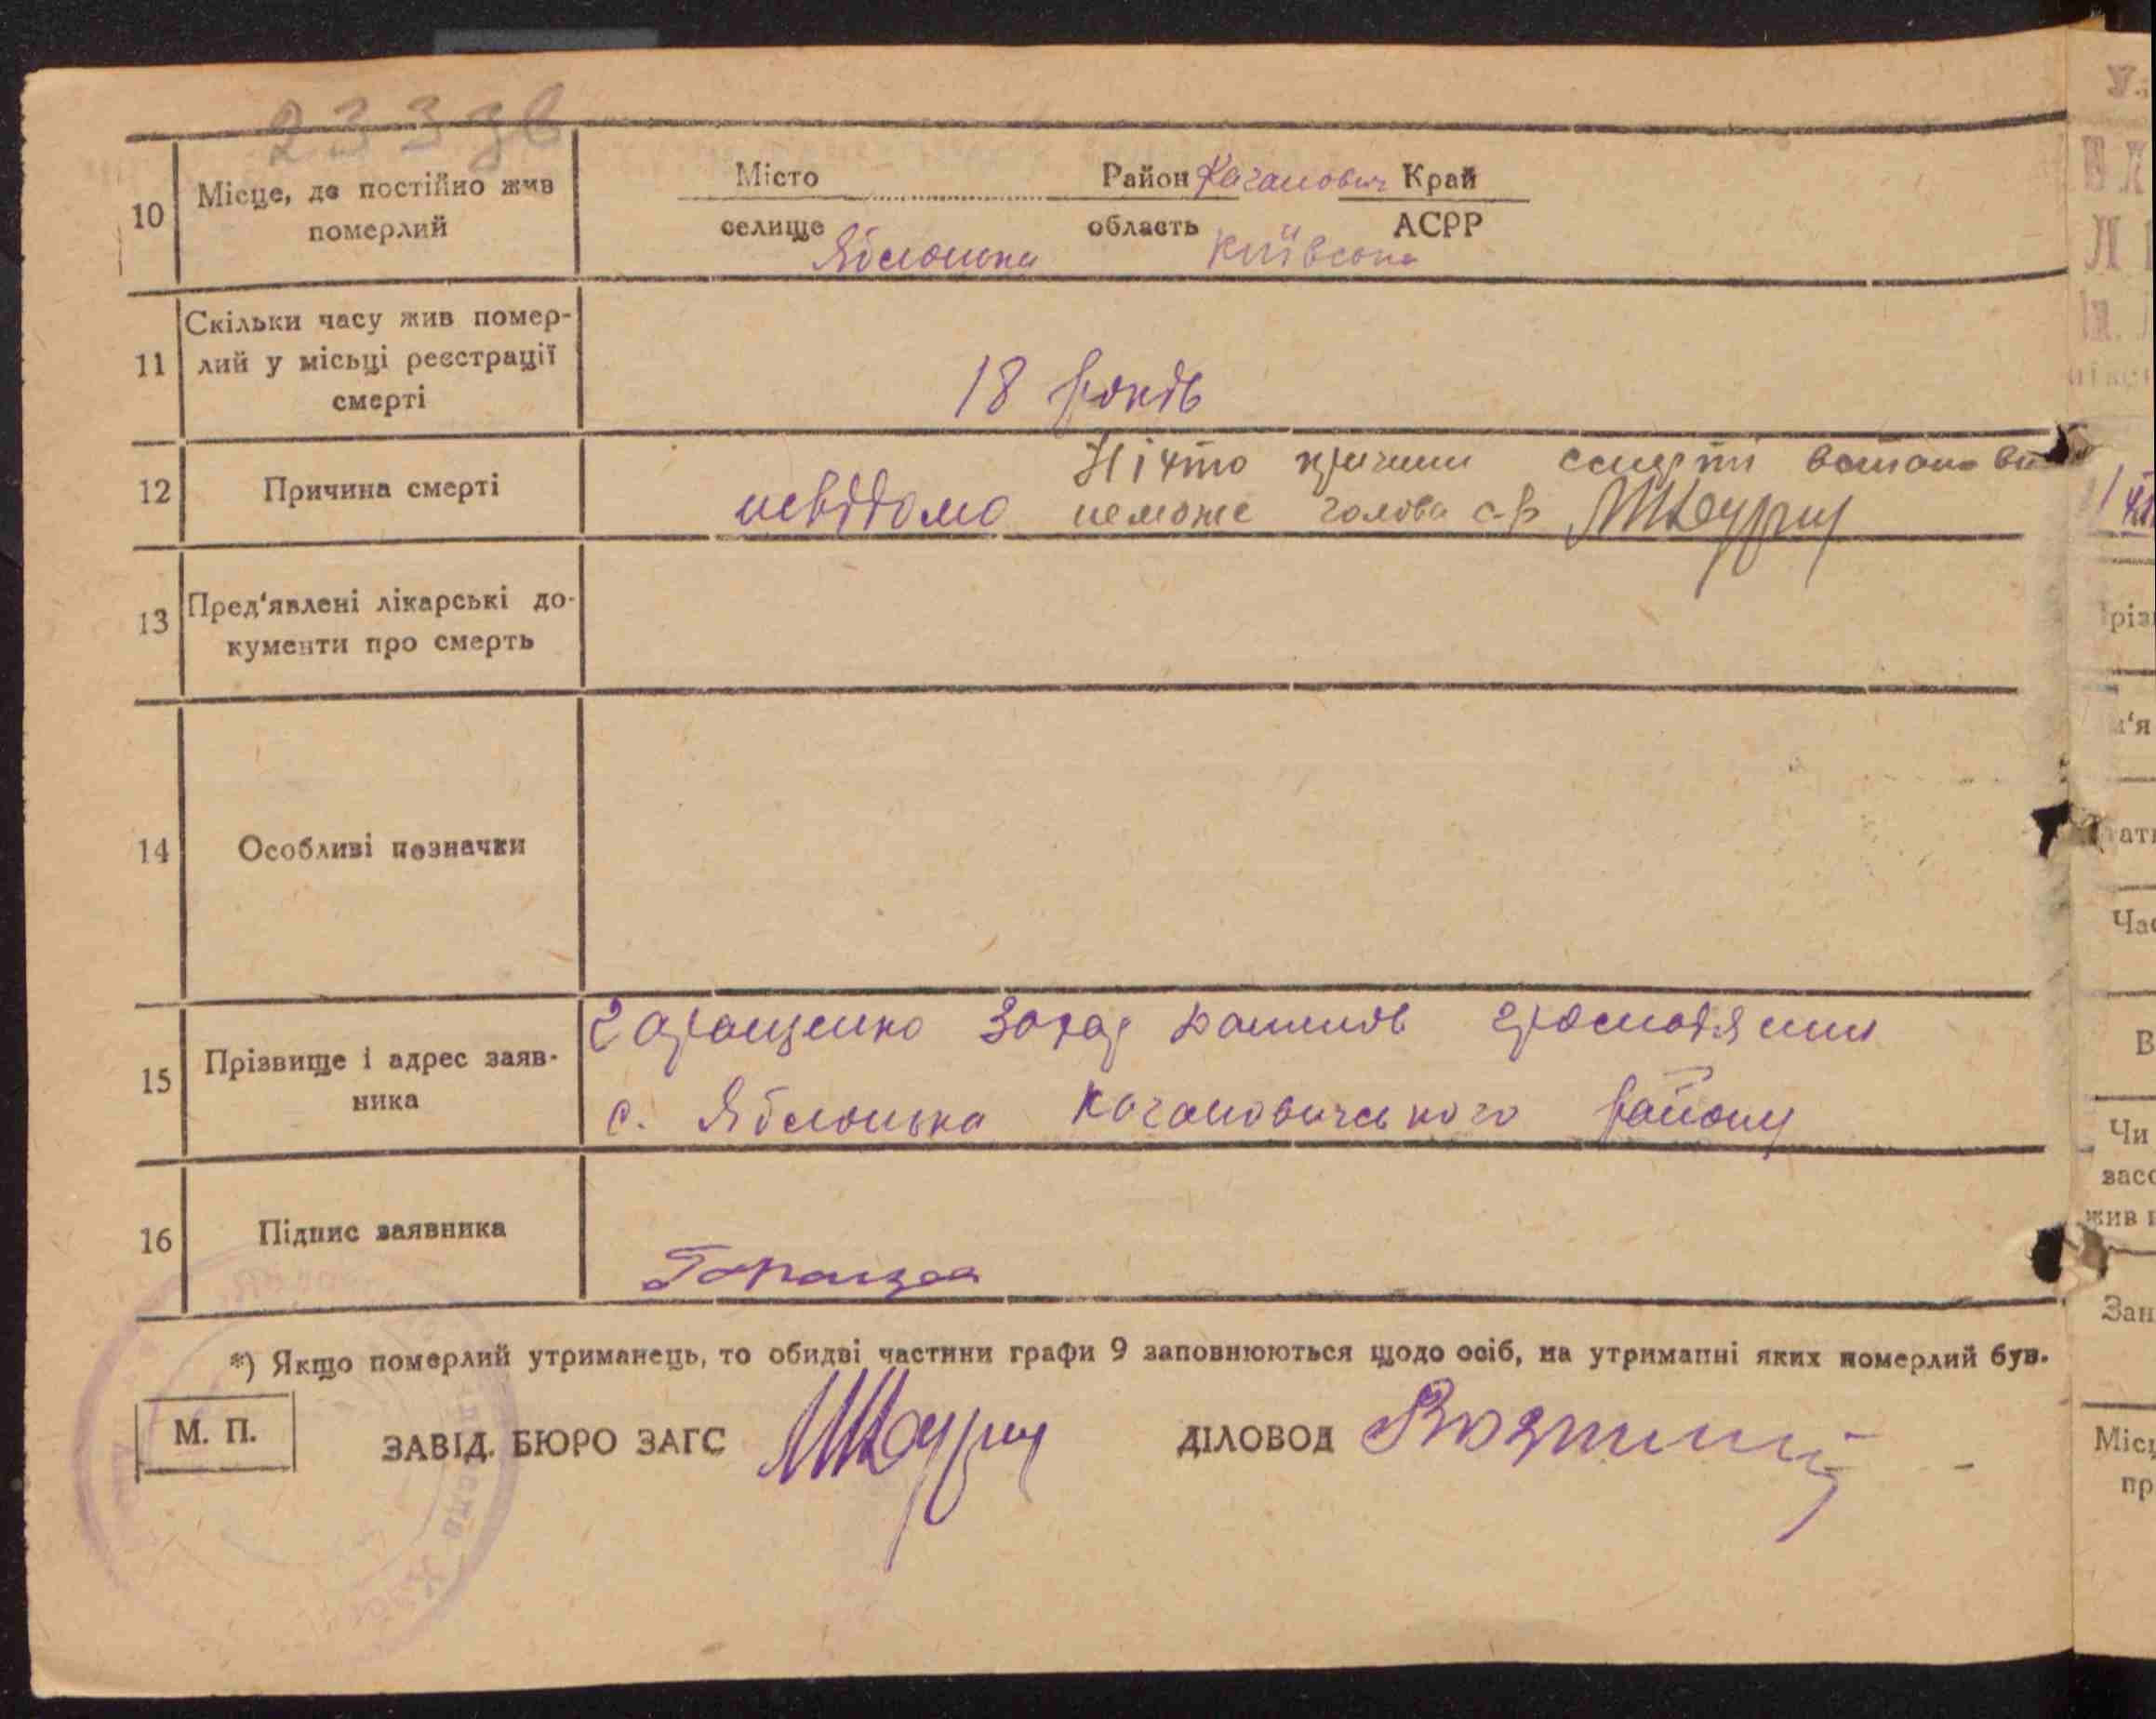 233 зв
10 Місце, де постійно жив померлий
Місто Район Каганович Край
селище Яблонька область Київська АСРР
11 Скільки часу жив помер-
лий у місьці реєстрації
смерті
18 років
12 Причина смерті
невідомо Ніхто причини смерті
неможе голова с-р
13 Пред'явлені лікарські до-
кументи про смерть
14 Особливі позначки
15 Прізвище і адрес заяв-
ника
Гаращенко Захар
с. Яблонька Кагановичського району
16 Підпис заявника
*) Якщо померлий утриманець, то обидві частини графи 9 заповнюються щодо осіб, на утриманні яких померлий був.
М. П. ЗАВІД. БЮРО ЗАГС ДІЛОВОД